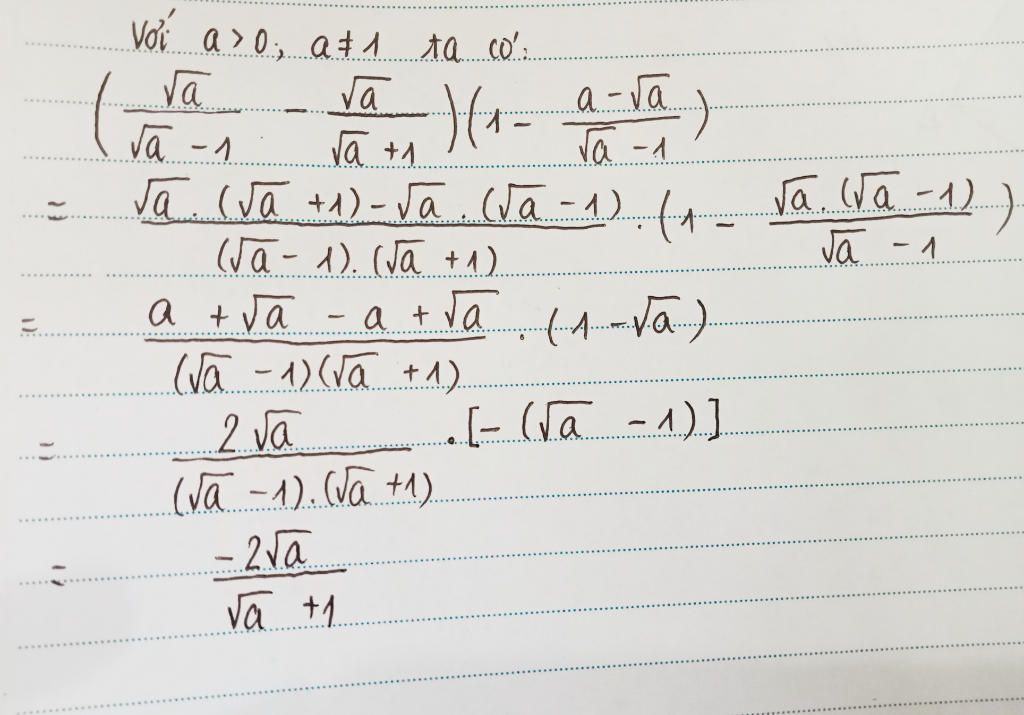 Với a > 0; a ≠ 1 ta có:
(√a/(√a - 1) - √a/(√a + 1))(1 - (a - √a)/(√a - 1))
= (√a . (√a + 1) - √a . (√a - 1))/((√a - 1). (√a + 1)) . (1 - (√a. (√a - 1))/(√a - 1))
= (a + √a - a + √a)/((√a - 1)(√a + 1)) . (1 - √a)
= 2√a/((√a - 1).(√a + 1)) . [- (√a - 1)]
= -2√a/(√a + 1)